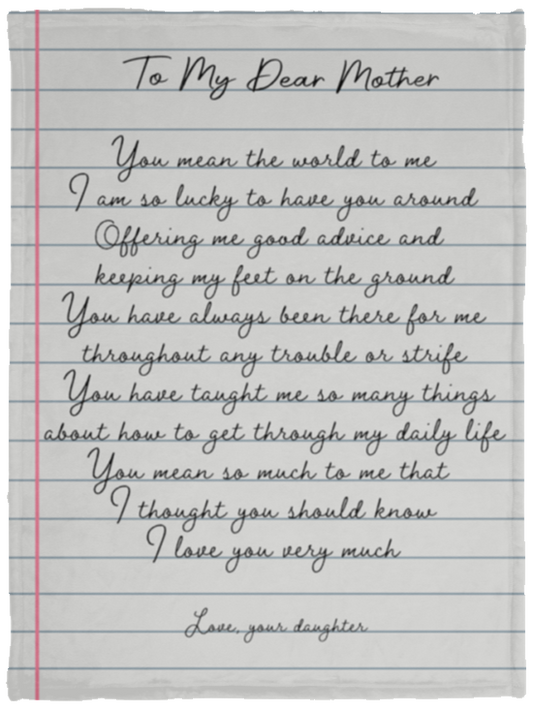 To My Dear Mother
You mean the world to me
I am so lucky to have you around
Offering me good advice and
keeping my feet on the ground
You have always been there for me
throughout any trouble or strife
You have taught me so many things
about how to get through my daily life
You mean so much to me that
I thought you should know
I love you very much
Love, your daughter